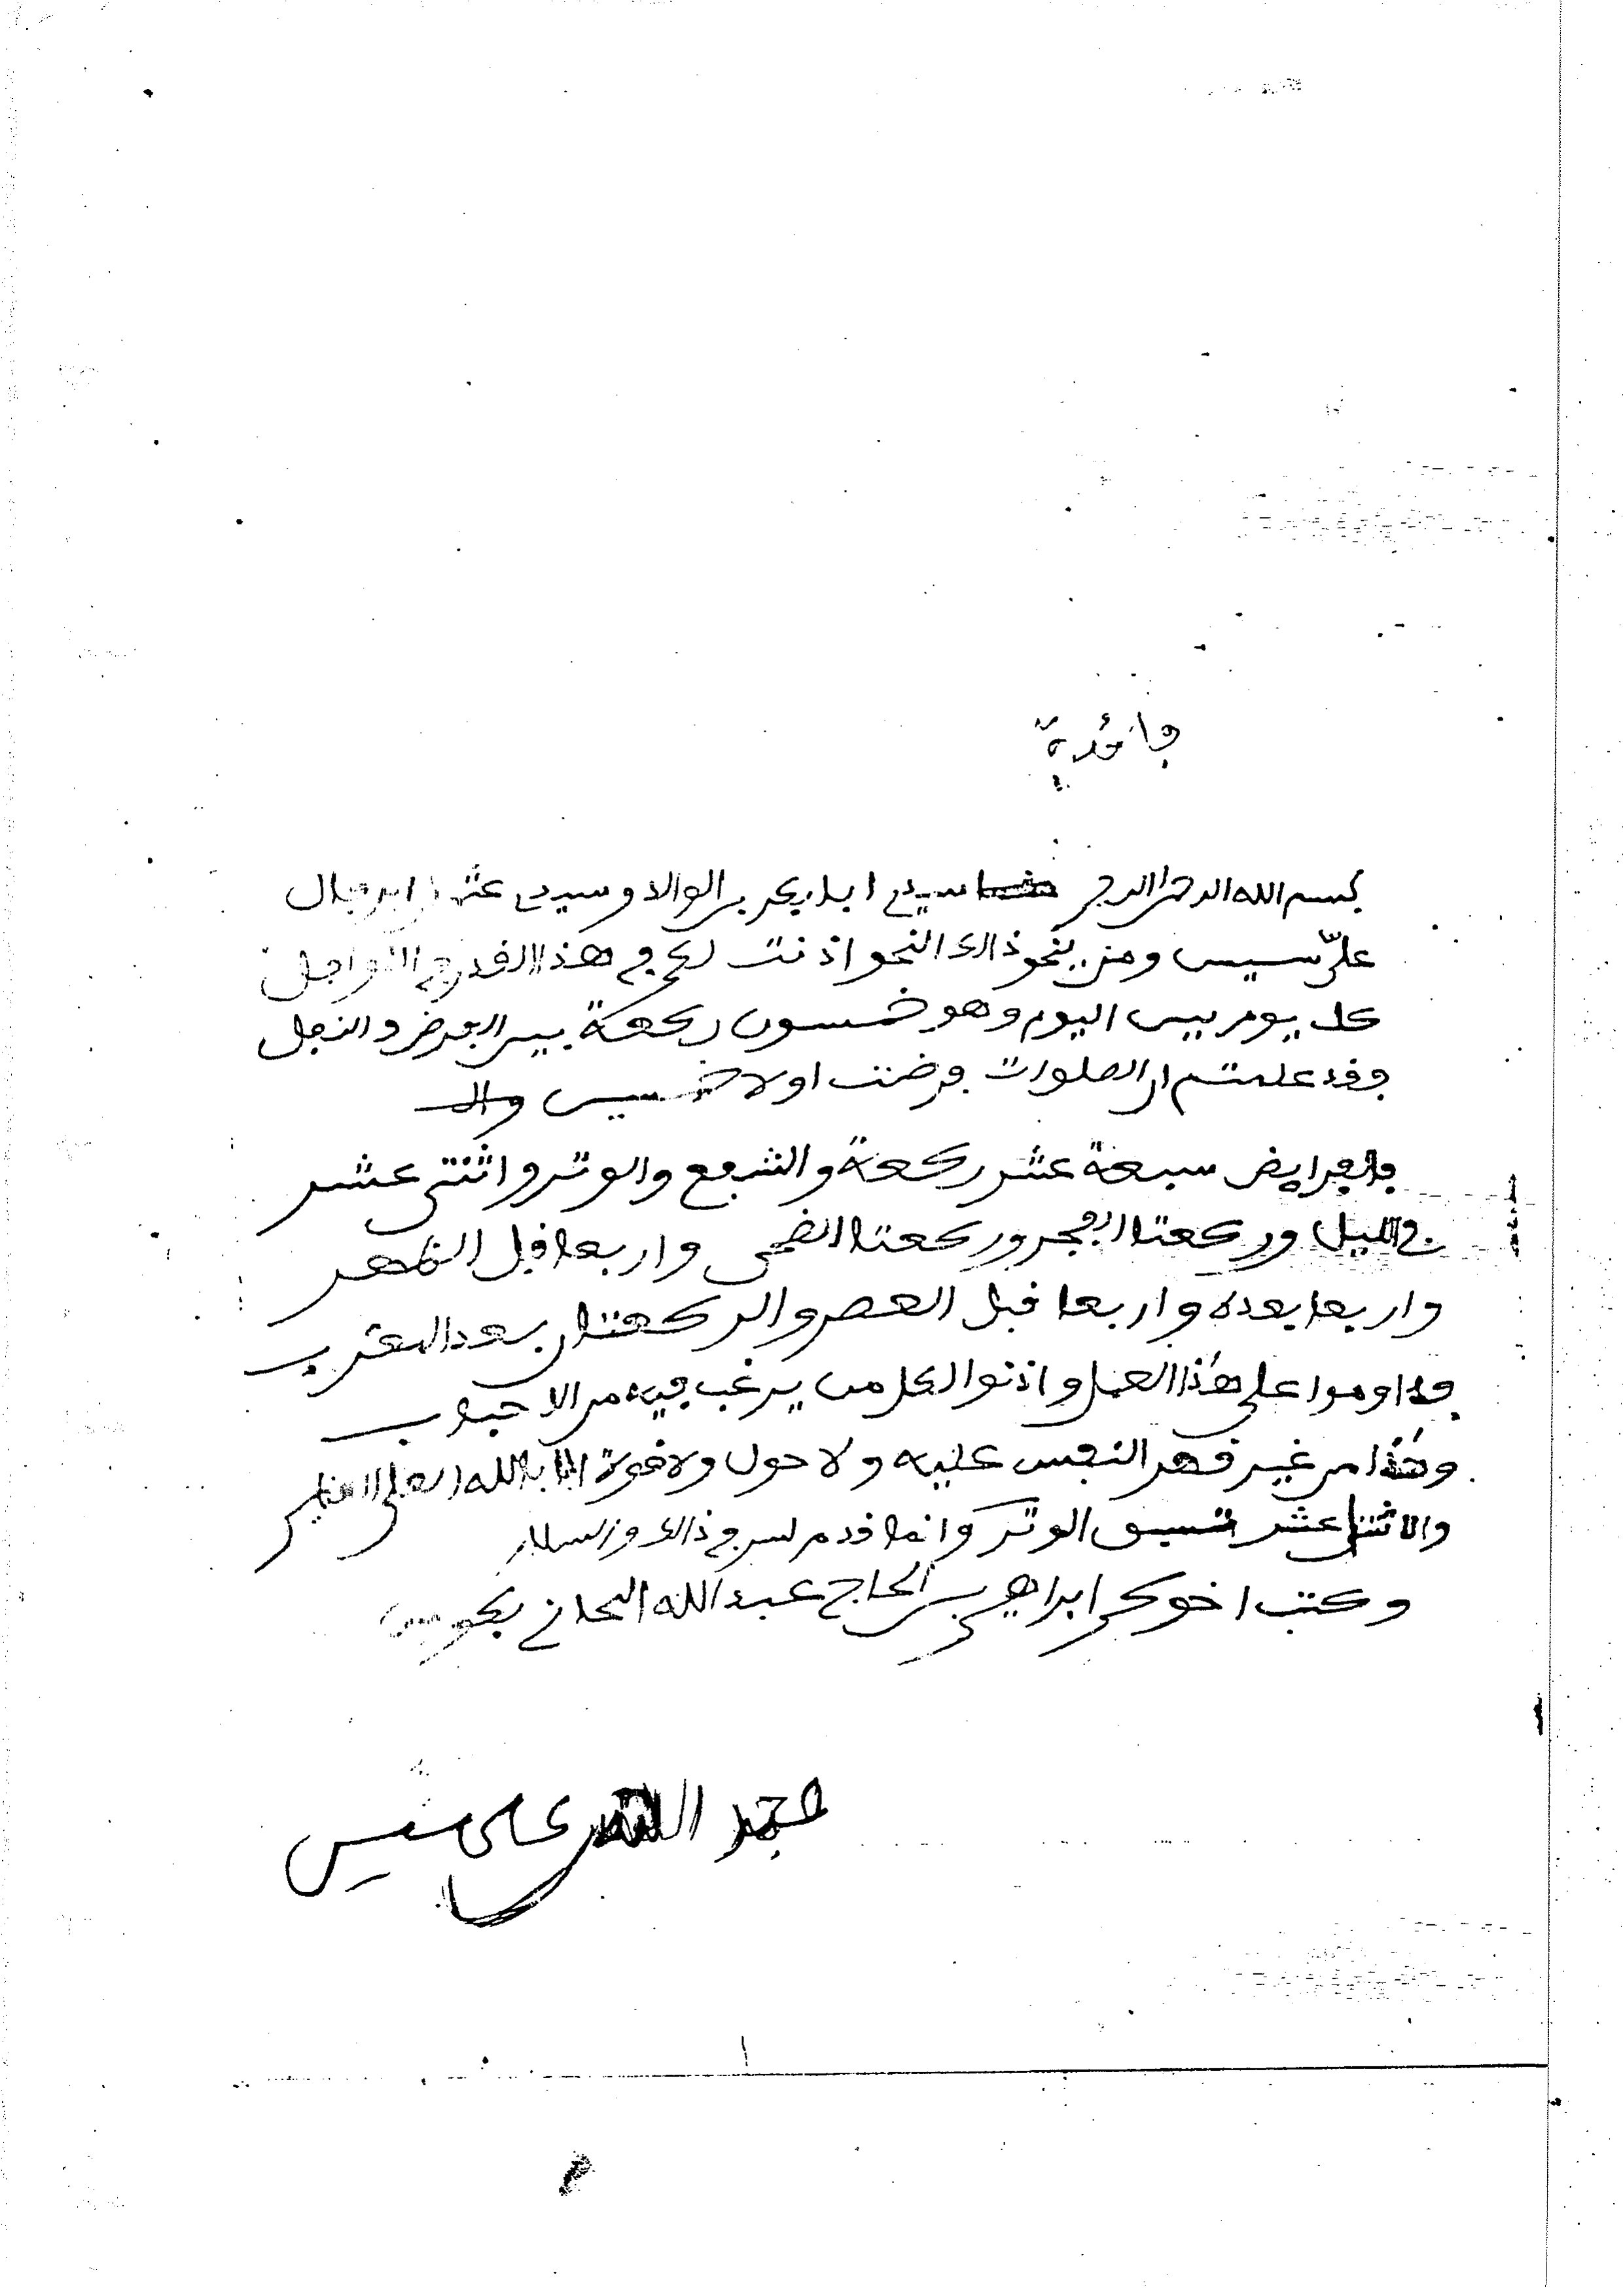 فائدة
بسم الله الرحمن الرحيم سيدي ابا بكر بن الوالد وسيدي عثمان ابن جال
على سيس ومن ينحو ذالك النحو اذنت لكم في هذا القدر في النوافل
كل يوم بيس اليوم وهو خمسون ركعة بين الفرض والنفل
وقد علمتم ان الصلوات فرضت اولا خمسين
فالفرايض سبعة عشر ركعة والشفع والوتر واثنتى عشر
في الليل وركعتا الفجر وركعتا الضحى واربعا قبل الظهر
واربعا بعده واربعا قبل العصر والركعتان بعد المغرب
فداوموا على هذا العمل واذنوا لكل من يرغب فيه من الاحباب
وهذا من غير قهر النفس عليه ولا حول ولا قوة الا بالله العلي العظيم
والاثنتا عشر تسبق الوتر وانما قدم لسر في ذالك والسلام
وكتب اخوكم ابراهيم بن الحاج عبد الله التجاني بكوسى
على سيس